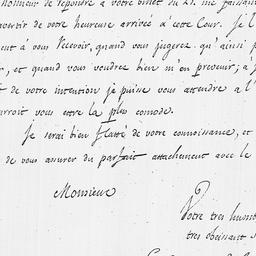 honneur de repondre a votre billet du 21. me faisant
avertir de votre heureuse arrivée a cette Cour. Je l'
ent a vous recevoir, quand vous jugerez qu'ainsi p
, et quand vous voudrez bien m'en prevenir, a f
t de votre intention je puisse vous attendre a l'
urroit vous etre la plus comode.
Je serai bien flatté de votre connoissance, et
de vous assurer du parfait attachement avec le
Monsieur
Votre tres humb
tres obeissant s